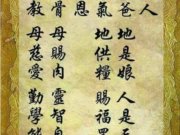 人
爸 地是娘 人是
氣 地供糧 賜福
恩
骨 母賜肉 靈智
教 母慈愛 勤學